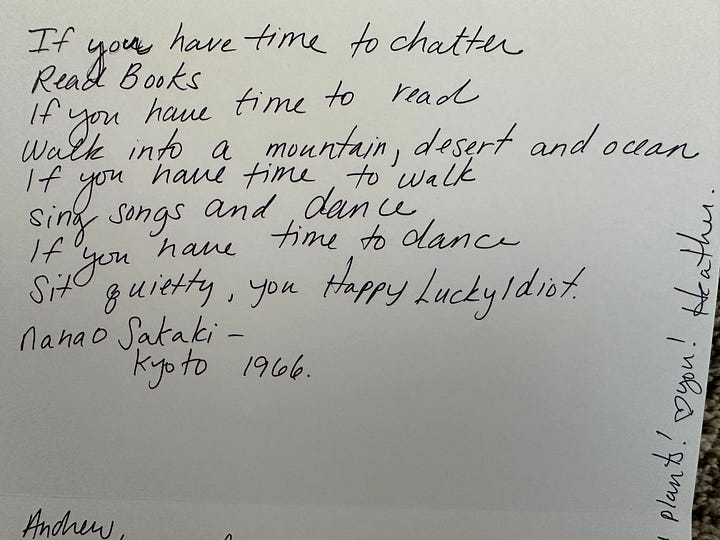 If you have time to chatter
Read Books
If you have time to read
Walk into a mountain, desert and ocean
If you have time to walk
sing songs and dance
If you have time to dance
Sit quietly, you Happy Lucky Idiot.
Nanao Sakaki –
Kyoto 1966.
Andrew,
plants! ♡you! Heather.